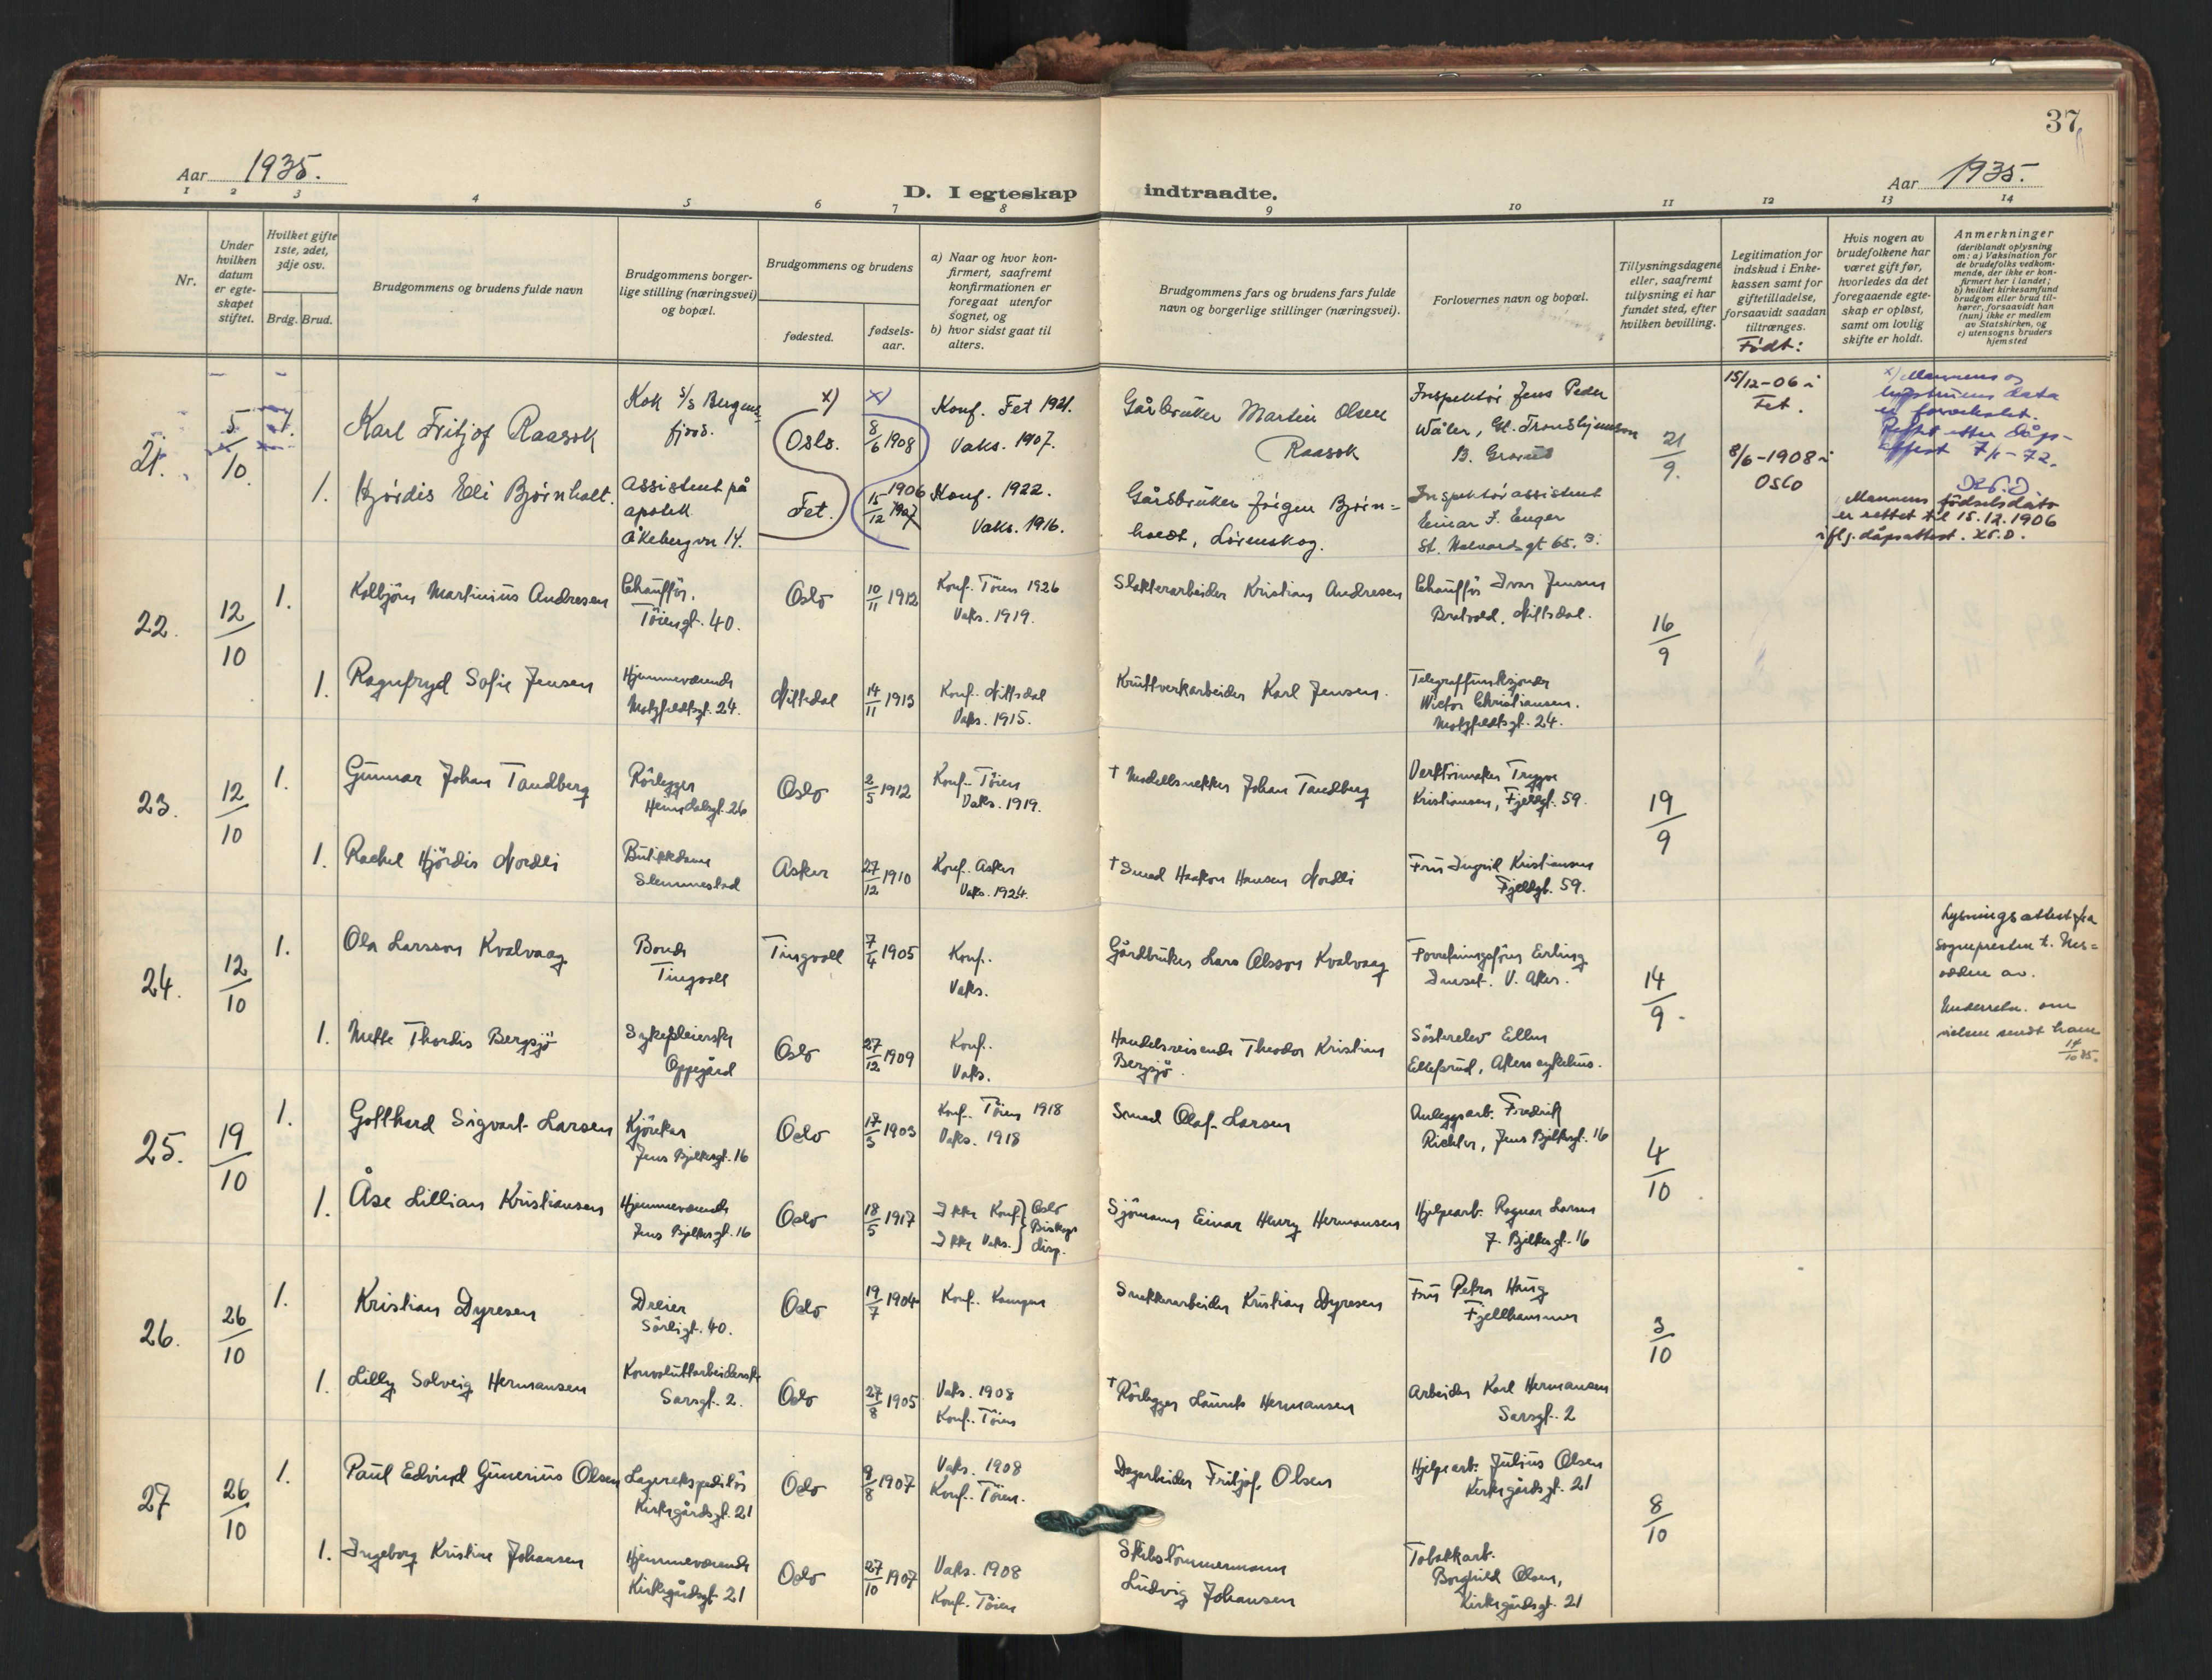 37
Aar 1935.
D. I egteskap indtraadte.
Aar 1935.
1 2 3 4 5 6 7 8 9 10 11 12 13 14
Nr.
Under hvilken datum er egteskapet stiftet.
Hvilket gifte 1ste, 2det, 3dje osv.
Brdg. Brud.
Brudgommens og brudens fulde navn
Brudgommens borgerlige stilling (næringsvei) og bopæl.
Brudgommens og brudens
fødested.
fødselsaar.
a) Naar og hvor konfirmert, saafremt konfirmationen er foregaat utenfor sognet, og
b) hvor sidst gaat til alters.
Brudgommens fars og brudens fars fulde navn og borgerlige stillinger (næringsvei).
Forlovernes navn og bopæl.
Tillysningsdagene eller, saafremt tillysning ei har fundet sted, efter hvilken bevilling.
Legitimation for indskud i Enkekassen samt for giftetilladelse, forsaavidt saadan tiltrænges.
Født:
Hvis nogen av brudefolkene har været gift før, hvorledes da det foregaaende egteskap er opløst, samt om lovlig skifte er holdt.
Anmerkninger (deriblandt oplysning om: a) Vaksination for de brudefolks vedkommende, der ikke er konfirmert her i landet; b) hvilket kirkesamfund brudgom eller brud tilhører, forsaavidt han (hun) ikke er medlem av Statskirken, og c) utensogns bruders hjemsted
21. 5/10 1. Karl Fritjof Raasok
Kok S/S Bergensfjord.
x) Oslo. x) 8/6 1908
Konf. Fet 1921.
Vaks. 1907.
Gårbruker Martin Olsen
Raasok
Inspektør Jens Peder
Wåler, Gl. Trondhjemsvn
21/9.
15/12-06 i
Fet.
x) Mannens og
data
er forvekslet.
Rettet etter dåpsattest 7/1-72.
1. Hjørdis Elli Bjørnholt.
Assistent på
apotek
Åkebergvn 14.
Fet. 15/12 1906 1907
Konf. 1922.
Vaks. 1916.
Gårdsbruker Jørgen Bjørnholdt, Lørenskog.
Inspektørassistent
Einar J. Enger
St. Halvardsgt 65.
8/6-1908 i
Oslo
Mannens fødselsdato
er rettet til 15.12.1906
iflg. dåpsattest.
22. 12/10 1. Kolbjørn Martinius Andresen
Chauffør.
Tøiengt. 40.
Oslo 10/11 1912
Konf. Tøien 1926
Vaks. 1919.
Slakterarbeider Kristian Andresen
Chauffør Ivar Jensen
Bratvold, Nittedal.
16/9
1. Ragnfryd Sofie Jensen
Hjemmeværende
Motzfeldtsgt. 24.
Nittedal 14/11 1913
Konf. Nittedal
Vaks. 1915.
Kruttverkarbeider Karl Jensen.
Telegraffunksjonær
Victor Christiansen.
Motzfeldtsgt. 24.
23. 12/10 1. Gunnar Johan Tandberg
Rørlegger
Heimdalsgt. 26
Oslo 2/5 1912
Konf. Tøien
Vaks. 1919.
† Modellsnekker Johan Tandberg
Verktøimaker Trygve
Kristiansen, Fjellgt. 59.
19/9
1. Rachel Hjørdis Nordli
Butikkdame
Slemmestad
Asker 27/12 1910
Konf. Asker
Vaks. 1924.
† Smed Haakon Hansen Nordli
Fru Ingrid Kristiansen
Fjellgt. 59.
24. 12/10 1. Ola Larsson Kvalvaag
Bonde
Tingvoll
Tingvoll 7/4 1905
Konf.
Vaks.
Gårdbruker Lars Olsson Kvalvaag
Forretningsfører Erling
Inset. V. Aker.
14/9.
Lysningsattest fra
sognepresten t. Nesodden av.
Underretn. om
vielsen sendt ham
1. Mette Thordis Bergsjö
Sykepleierske
Oppegård
Oslo 27/12 1909
Konf.
Vaks.
Handelsreisende Theodor Kristian
Bergsjö.
Søsterelev Ellen
Ellefsrud, Aker sykehus.
25. 19/10 1. Gotthard Sigvart Larsen
Kjørekar
Jens Bjelkesgt. 16
Oslo 17/3 1903
Konf. Tøien 1918
Vaks. 1918
Smed Olaf Larsen
Anleggsarb. Fredrik
Richter, Jens Bjelkesgt. 16
4/10
1. Åse Lillian Kristiansen
Hjemmeværende
Jens Bjelkesgt. 16
Oslo 18/5 1917
Ikke Konf.
Ikke Vaks.
Oslo
Biskops
disp.
Sjømann Einar Henry Hermansen
Hjelpearb. Ragnar Larsen
J. Bjelkesgt. 16
26. 26/10 1. Kristian Dyresen
Dreier
Sørligt. 40.
Oslo 19/7 1904
Konf. Kampen
Snekkerarbeider Kristian Dyresen
Fru Petra Haug
Fjellhammer
3/10
1. Lilly Solveig Hermansen
Konvoluttarbeiderske
Sarsgt. 2.
Oslo 27/8 1905
Vaks. 1908
Konf. Tøien
† Rørlegger Laurits Hermansen
Arbeider Karl Hermansen
Sarsgt. 2
27 26/10 1. Paul Edvind Gunerius Olsen
Lagerekspeditør
Kirkegårdsgt. 21
Oslo 9/8 1907
Vaks. 1908
Konf. Tøien.
Dagarbeider Fritjof Olsen
Hjelpearb. Julius Olsen
Kirkegårdsgt. 21
8/10
1. Ingeborg Kristine Johansen
Hjemmeværende
Kirkegårdsgt 21
Oslo 27/10 1907
Vaks. 1908
Konf. Tøien
Skibstømmermann
Ludvig Johansen
Tobakkarb.
Borghild Olsen,
Kirkegårdsgt. 21